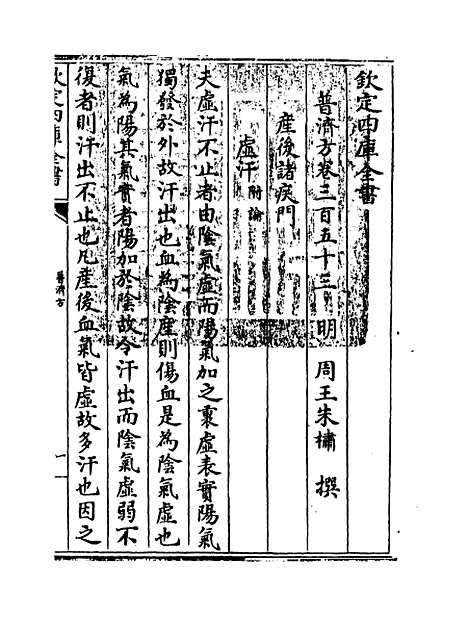 欽定四庫全書
普濟方卷三百五十三 明 周王朱橚 撰
產後諸疾門
虛汗附論
夫虛汗不止者由陰氣虛而陽氣加之裏虛表實陽氣
獨發於外故汗出也血為陰產則傷血是為陰氣虛也
氣為陽其氣實者陽加於陰故令汗出而陰氣虛弱不
復者則汗出不止也凡產後血氣皆虛故多汗也因之
欽定四庫全書
普濟方
一